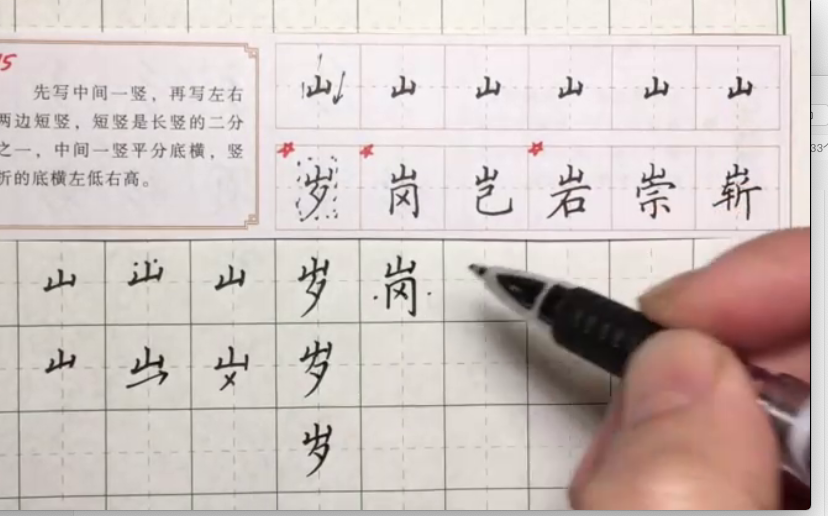 15
先写中间一竖，再写左右
两边短竖，短竖是长竖的二分
之一，中间一竖平分底横，竖
折的底横左低右高。
山 山 山 山 山 山
岁 岗 岂 岩 崇 崭
山 山 山 岁 岗
山 山 山 岁
岁
33个